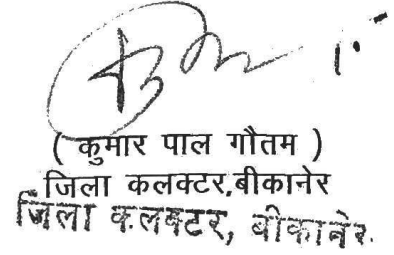 ( कुमार पाल गौतम )
जिला कलक्टर,बीकानेर
जिला कलक्टर, बीकानेर